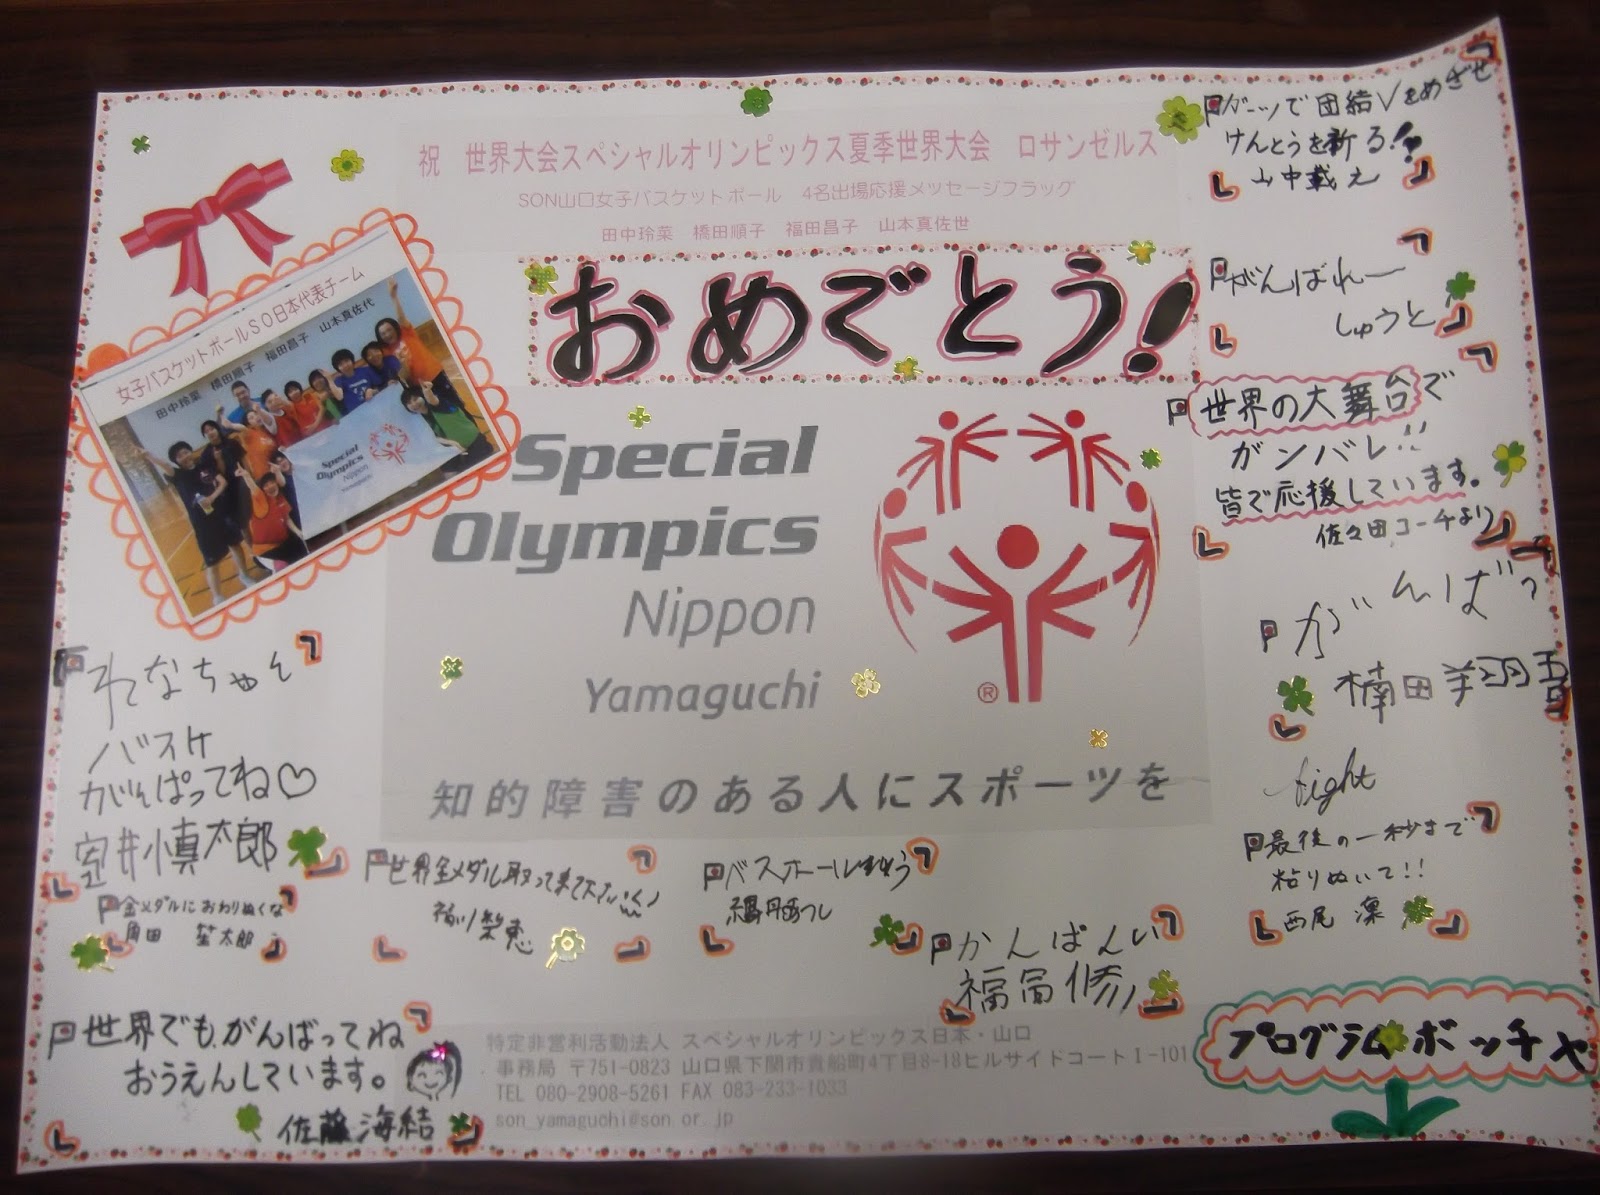 祝　世界大会スペシャルオリンピックス夏季世界大会　ロサンゼルス
SON山口女子バスケットボール　4名出場応援メッセージフラッグ
田中玲菜　橋田順子　福田昌子　山本真佐世
おめでとう!
女子バスケットボールSO日本代表チーム
田中玲菜　橋田順子　福田昌子　山本真佐代
Special
Olympics
Nippon
Special
Olympics
Nippon
Yamaguchi
®
知的障害のある人にスポーツを
ガーッで団結Vをめざせ
けんとうを祈る!
がんばれー
しゅうと
世界の大舞台で
ガンバレ!!
皆で応援しています。
佐々田コーチより
がんばっ
楠田
fight
最後の一秒まで
粘りぬいて!!
西尾　凜
れなちゃん
バスケ
がんばってね♡
室井慎太郎
金メダルにおわりぬくな
角田　笙太郎
世界金メダル取って来て下さい
バスホール
かんぱんい
福冨修
世界でもがんばってね
おうえんしています。
佐藤海結
特定非営利活動法人 スペシャルオリンピックス日本・山口
事務局 〒751-0823 山口県下関市貴船町4丁目8-18ヒルサイドコートI-101
TEL 080-2908-5261 FAX 083-233-1033
son_yamaguchi@son.or.jp
プログラム ボッチャ